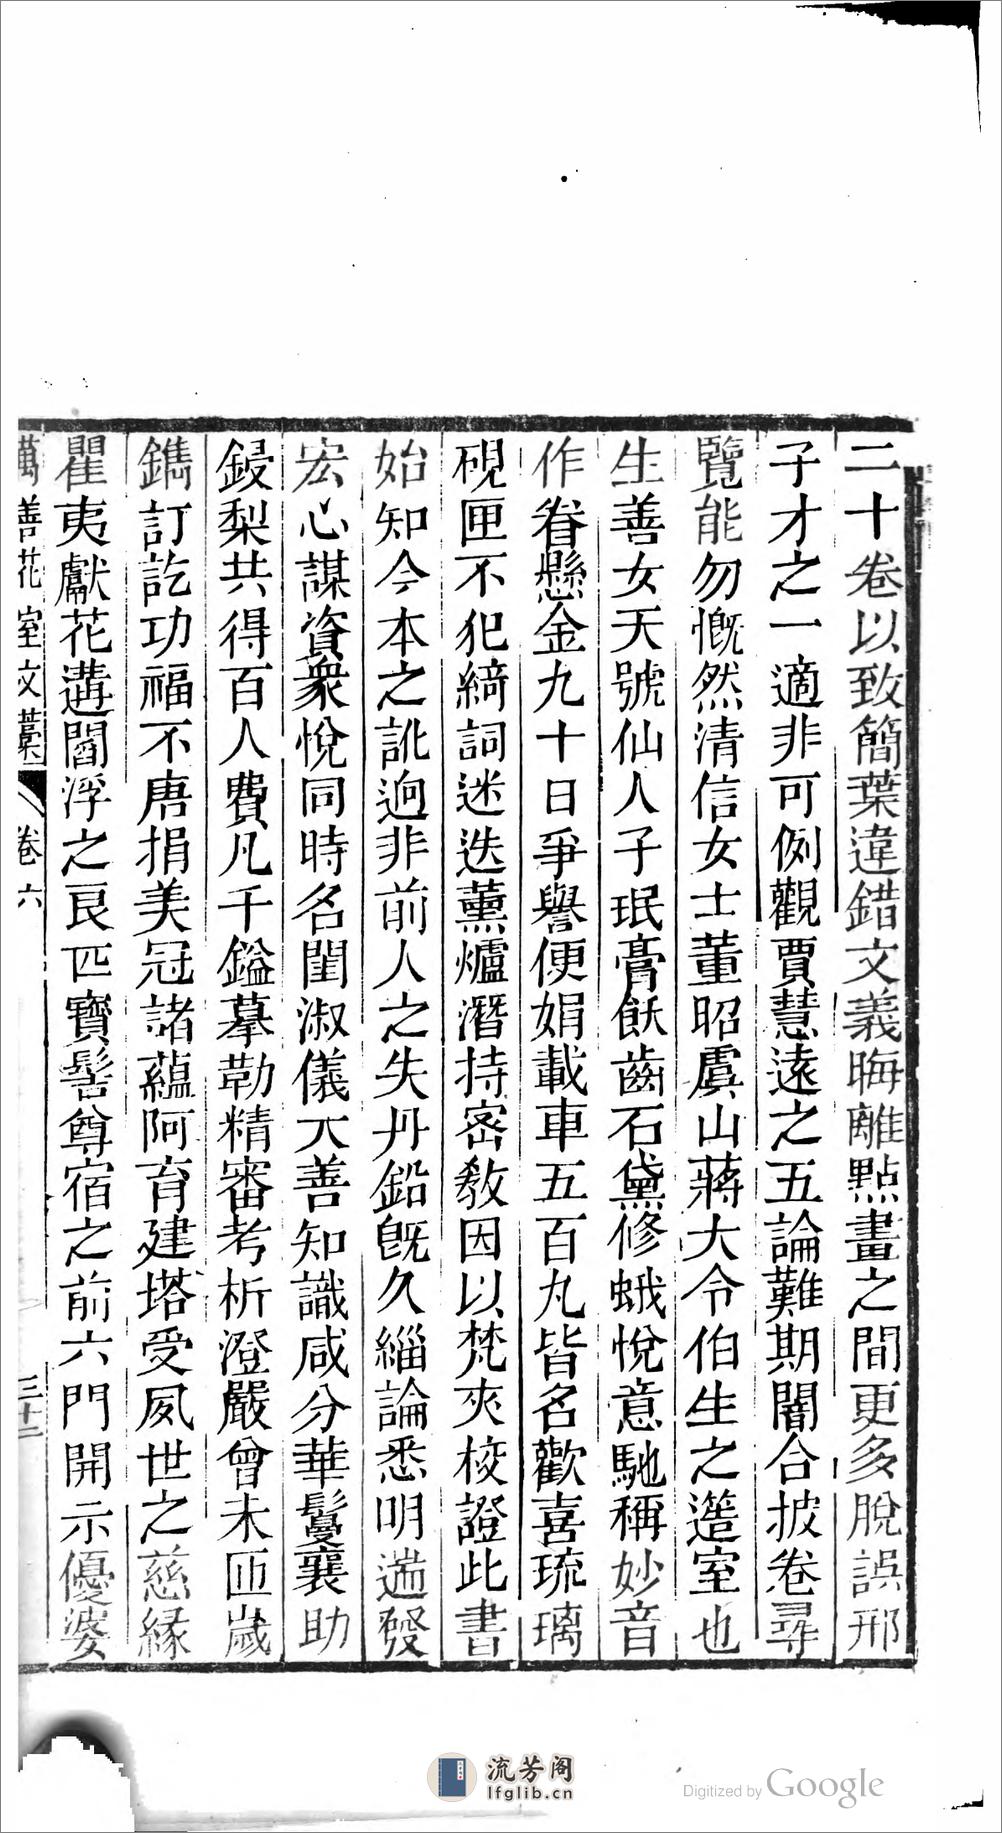 二十卷以致簡葉違錯文義晦離點畫之間更多脫誤邢
子才之一適非可例觀賈慧遠之五論難期闇合披卷尋
覽能勿慨然清信女士董昭虞山蔣大令伯生之簉室也
生善女天號仙人子珉膏飫齒石黛修蛾悅意馳稱妙音
作眷懸金九十日爭譽便娟載車五百丸皆名歡喜琉璃
硯匣不犯綺詞迷迭薰爐潛持密敎因以梵夾校證此書
始知今本之訛逈非前人之失丹鉛旣久緇論悉明遄發
宏心謀資衆悅同時名閨淑儀大善知識咸分華鬘襄助
鋟梨共得百人費凡千鎰摹勒精審考析澄嚴曾未匝歲
鐫訂訖功福不唐捐美冠諸蘊阿育建塔受夙世之慈緣
瞿夷獻花遘閻浮之良匹寶髻尊宿之前六門開示優婆
萬善花室文藁 卷六 三十二
流芳阁
lfglib.cn
Digitized by Google